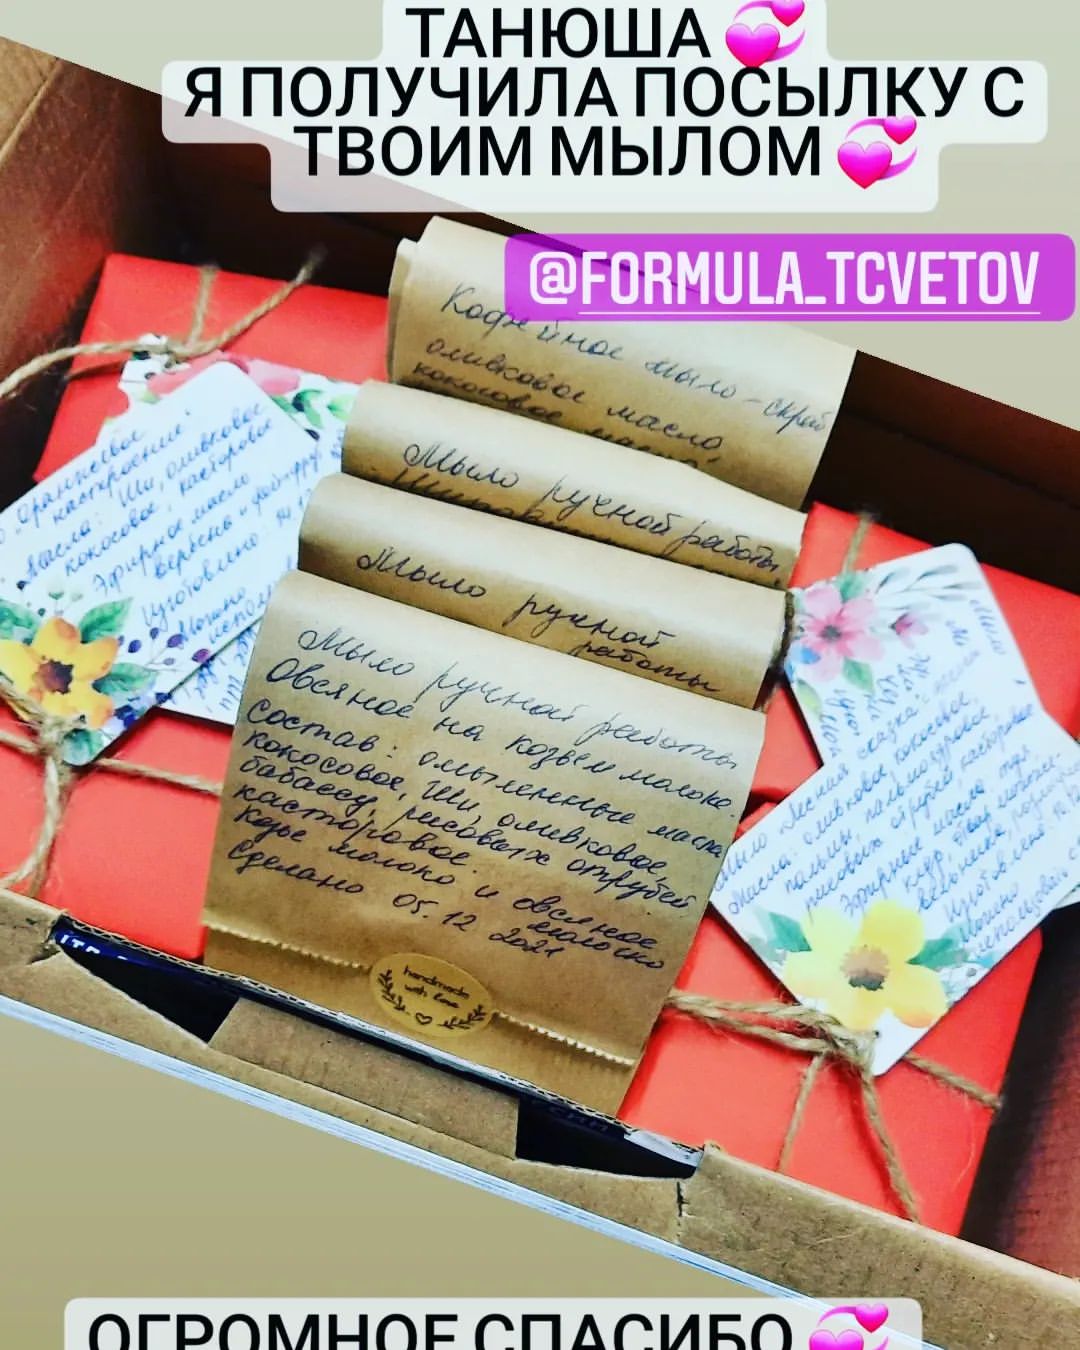 ТАНЮША 💞
Я ПОЛУЧИЛА ПОСЫЛКУ С
ТВОИМ МЫЛОМ 💞
@FORMULA_TCVETOV
Кофейное мыло-скраб
оливковое масло,
кокосовое масло,
Мыло ручной работы,
Мыло ручной
работы
Мыло ручной работы
Овсяное на козьем молоке.
Состав: омыленные масла
кокосовое, Ши, оливковое,
бабассу, рисовых отрубей
касторовое.
козье молоко и овсяное
молочко
Сделано 05.12 2021
handmade
with love
"Оранжевое
настроение"
Масла: Ши, оливковое
кокосовое, касторовое
Эфирное масло
вербены и
изготовлено:
Можно
Мыло "Лесная сказка"
Масла: оливковое, кокосовое,
пальмы, пальмоядровое
рисовых отрубей, касторовое
Эфирные масла
кедр,
Изготовлено:
Можно
использовать с
ОГРОМНОЕ СПАСИБО 💞